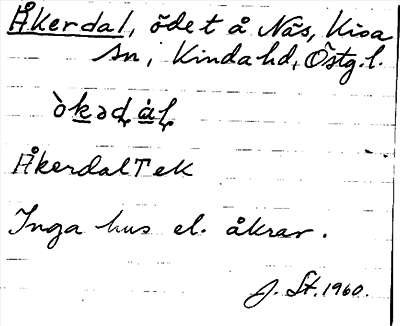 Åkerdal, ödet å Näs, Kisa
sn, Kinda hd, Östg. l.
Åkerdal T ek
Inga hus el. åkrar.
J. St. 1960.